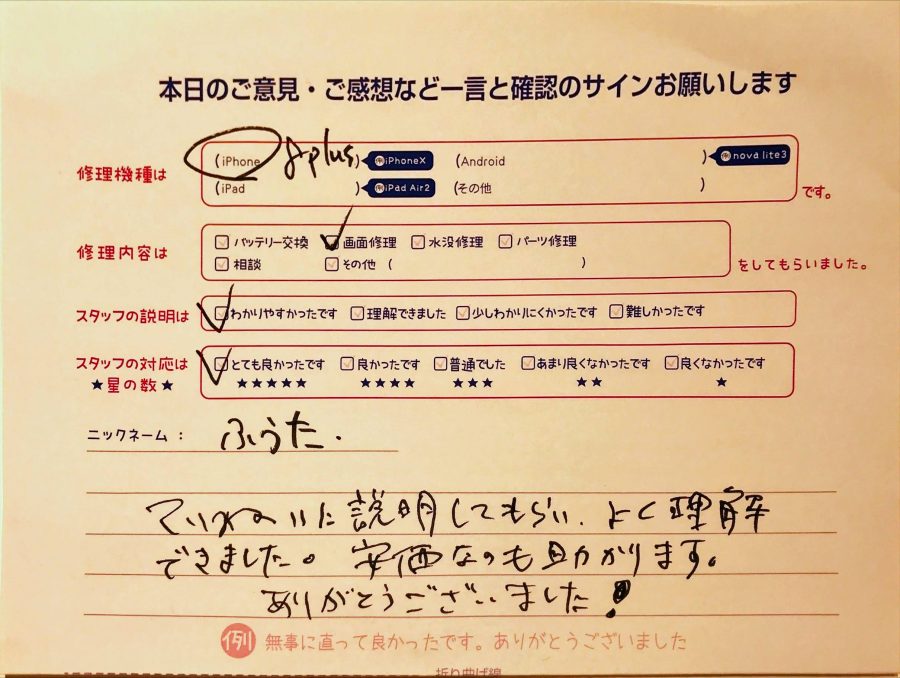 本日のご意見・ご感想など一言と確認のサインお願いします
修理機種は (iPhone 8plus) 例iPhoneX (Android ) 例nova lite3
(iPad ) 例iPad Air2 (その他 ) です。
修理内容は バッテリー交換 画面修理 水没修理 パーツ修理
相談 その他 ( ) をしてもらいました。
スタッフの説明は わかりやすかったです 理解できました 少しわかりにくかったです 難しかったです
スタッフの対応は とても良かったです 良かったです 普通でした あまり良くなかったです 良くなかったです
★星の数★ ★★★★★ ★★★★ ★★★ ★★ ★
ニックネーム： ふうた.
ていねいに説明してもらい、よく理解
できました。安価なのも助かります。
ありがとうございました!
例 無事に直って良かったです。ありがとうございました
折り曲げ線